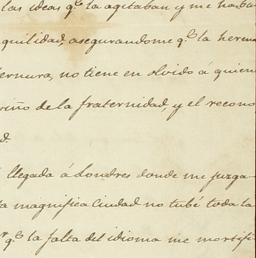 las ideas q.e la agitaban y me hallaba
quilidad, asegurandome q.e la herma
ternura, no tiene en olvido á quien
riño de la fraternidad, y el recono
d.
llegada á Londres donde me juzga-
a magnifica Ciudad no tubé toda la
q.e la falta del idioma me mortifi-